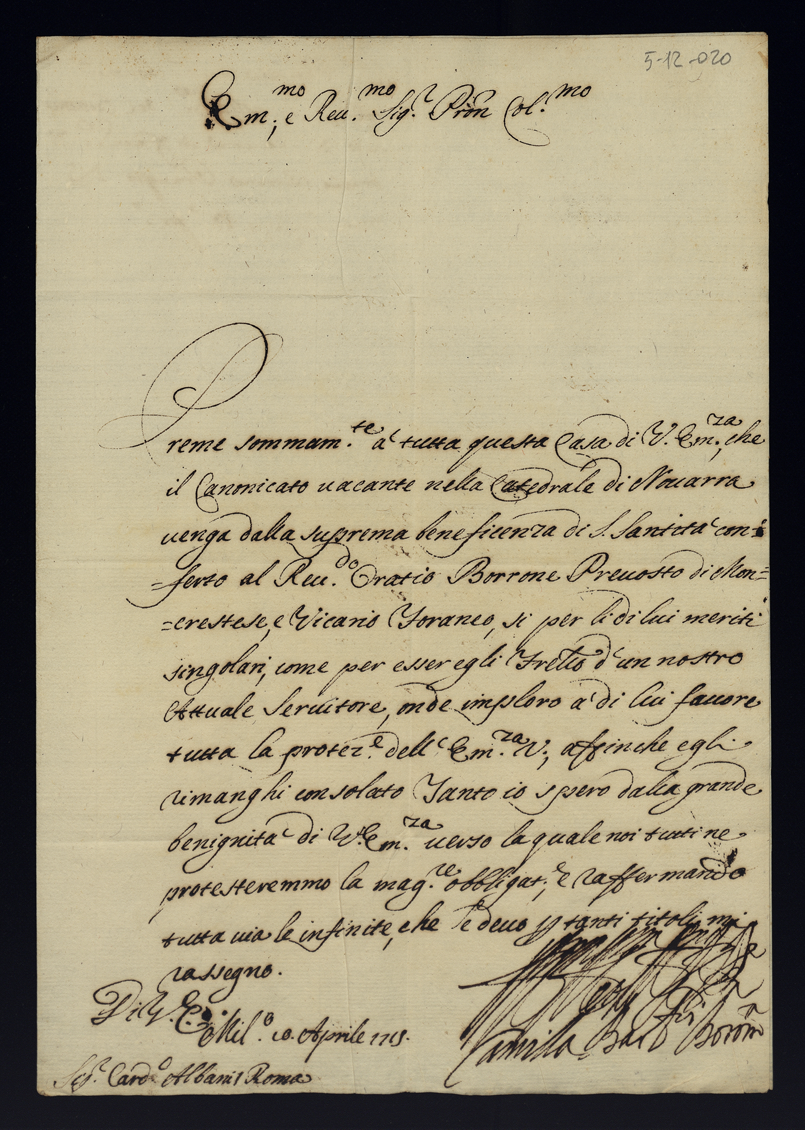 5-12-020
Em:mo e Reu.mo Sig.r Pron Col.mo
Preme sommam.te à tutta questa Casa di V. Em.za, che
il Canonicato vacante nella Catedrale di Nouarra
venga dalla suprema beneficenza di S. Santità con=
=ferto al Reu.do Oratio Borrone Preuosto di Mon=
=crestese, e Vicario Foraneo, si per li di lui meriti
singolari, come per esser egli Frello d'un nostro
Attuale Seruitore, onde imploro à di lui fauore
tutta la protez.e dell' Em.za V., affinche egli
rimanghi consolato Tanto io spero dalla grande
benignità di V. Em.za verso la quale noi tutti ne
protesteremmo la mag.re obbligat.e, e raffermando
tutta via le infinite, che le deuo p tanti titoli mi
rassegno.
Di V. E.
Mil.o 10. Aprile 1715.
Camilla Bar Borom
Sig.r Card. Albani Roma